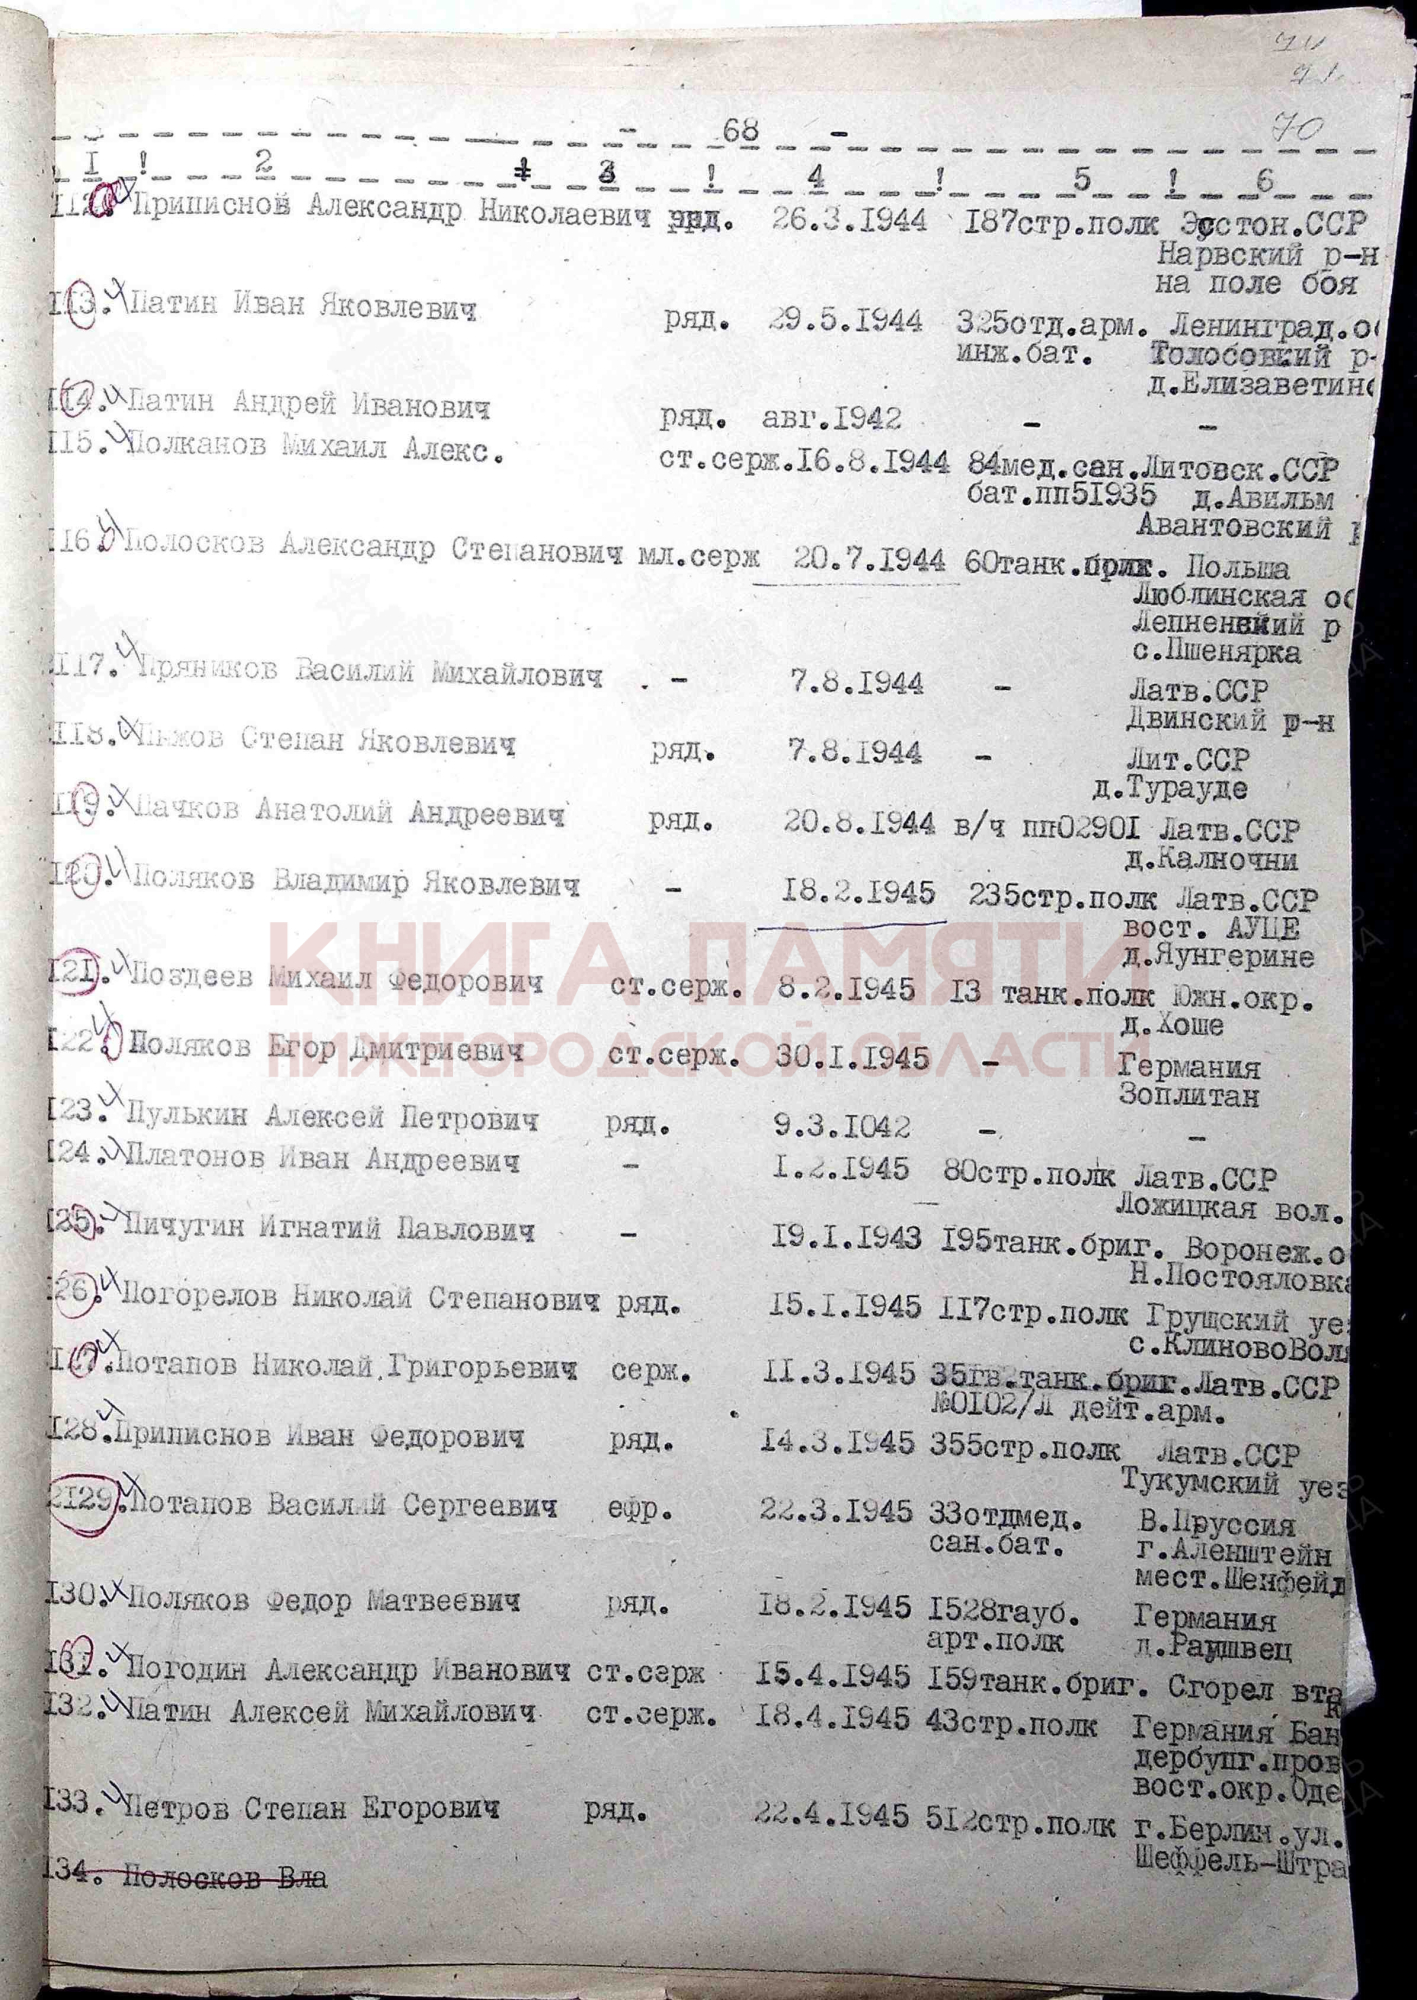 70
- 68 -
I ! 2 ! 3 ! 4 ! 5 ! 6
112. Приписнов Александр Николаевич ряд. 26.3.1944 187стр.полк Эсстон.ССР
Нарвский р-н
на поле боя
113. Патин Иван Яковлевич ряд. 29.5.1944 325отд.арм. Ленинград.о
инж.бат. Толосовкий р-
д.Елизаветин
114. Патин Андрей Иванович ряд. авг.1942 - -
115. Полканов Михаил Алекс. ст.серж.16.8.1944 84мед.сан.Литовск.ССР
бат.пп51935 д.Авильм
Авантовский
116. Полосков Александр Степанович мл.серж 20.7.1944 60танк.бриг. Польша
Люблинская о
р
с.Пшенярка
117. Пряников Василий Михайлович - 7.8.1944 - Латв.ССР
Двинский р-н
118. Пыжов Степан Яковлевич ряд. 7.8.1944 - Лит.ССР
д.Турауде
119. Пачков Анатолий Андреевич ряд. 20.8.1944 в/ч пп02901 Латв.ССР
д.Калночни
120. Поляков Владимир Яковлевич - 18.2.1945 235стр.полк Латв.ССР
вост. АУЦЕ
д.Яунгерине
121. Поздеев Михаил Федорович ст.серж. 8.2.1945 13 танк.полк Южн.окр.
д.Хоше
122. Поляков Егор Дмитриевич ст.серж. 30.I.1945 - Германия
Зоплитан
123. Пулькин Алексей Петрович ряд. 9.3.1042 - -
124. Платонов Иван Андреевич - I.2.1945 80стр.полк Латв.ССР
Ложицкая вол.
125. Пичугин Игнатий Павлович - 19.I.1943 195танк.бриг. Воронеж.о
Н.Постояловка
126. Погорелов Николай Степанович ряд. 15.I.1945 117стр.полк Грушский уе
с.КлиновоВол
127. Потапов Николай Григорьевич серж. 11.3.1945 35гв.танк.бриг.Латв.ССР
№0102/Л дейт.арм.
128. Приписнов Иван Федорович ряд. 14.3.1945 355стр.полк Латв.ССР
Тукумский уез
2129. Потапов Василий Сергеевич ефр. 22.3.1945 33отдмед. В.Пруссия
сан.бат. г.Аленштейн
мест.Шенфейд
130. Поляков Федор Матвеевич ряд. 18.2.1945 1528гауб. Германия
арт.полк д.Раушвец
131. Погодин Александр Иванович ст.серж 15.4.1945 159танк.бриг. Сгорел вта
к
132. Патин Алексей Михайлович ст.серж. 18.4.1945 43стр.полк Германия Бан
дербупг.пров
вост.окр.Оде
133. Петров Степан Егорович ряд. 22.4.1945 512стр.полк г.Берлин.ул.
Шеффель-Штра
134. Полосков Вла
КНИГА ПАМЯТИ
НИЖЕГОРОДСКОЙ ОБЛАСТИ